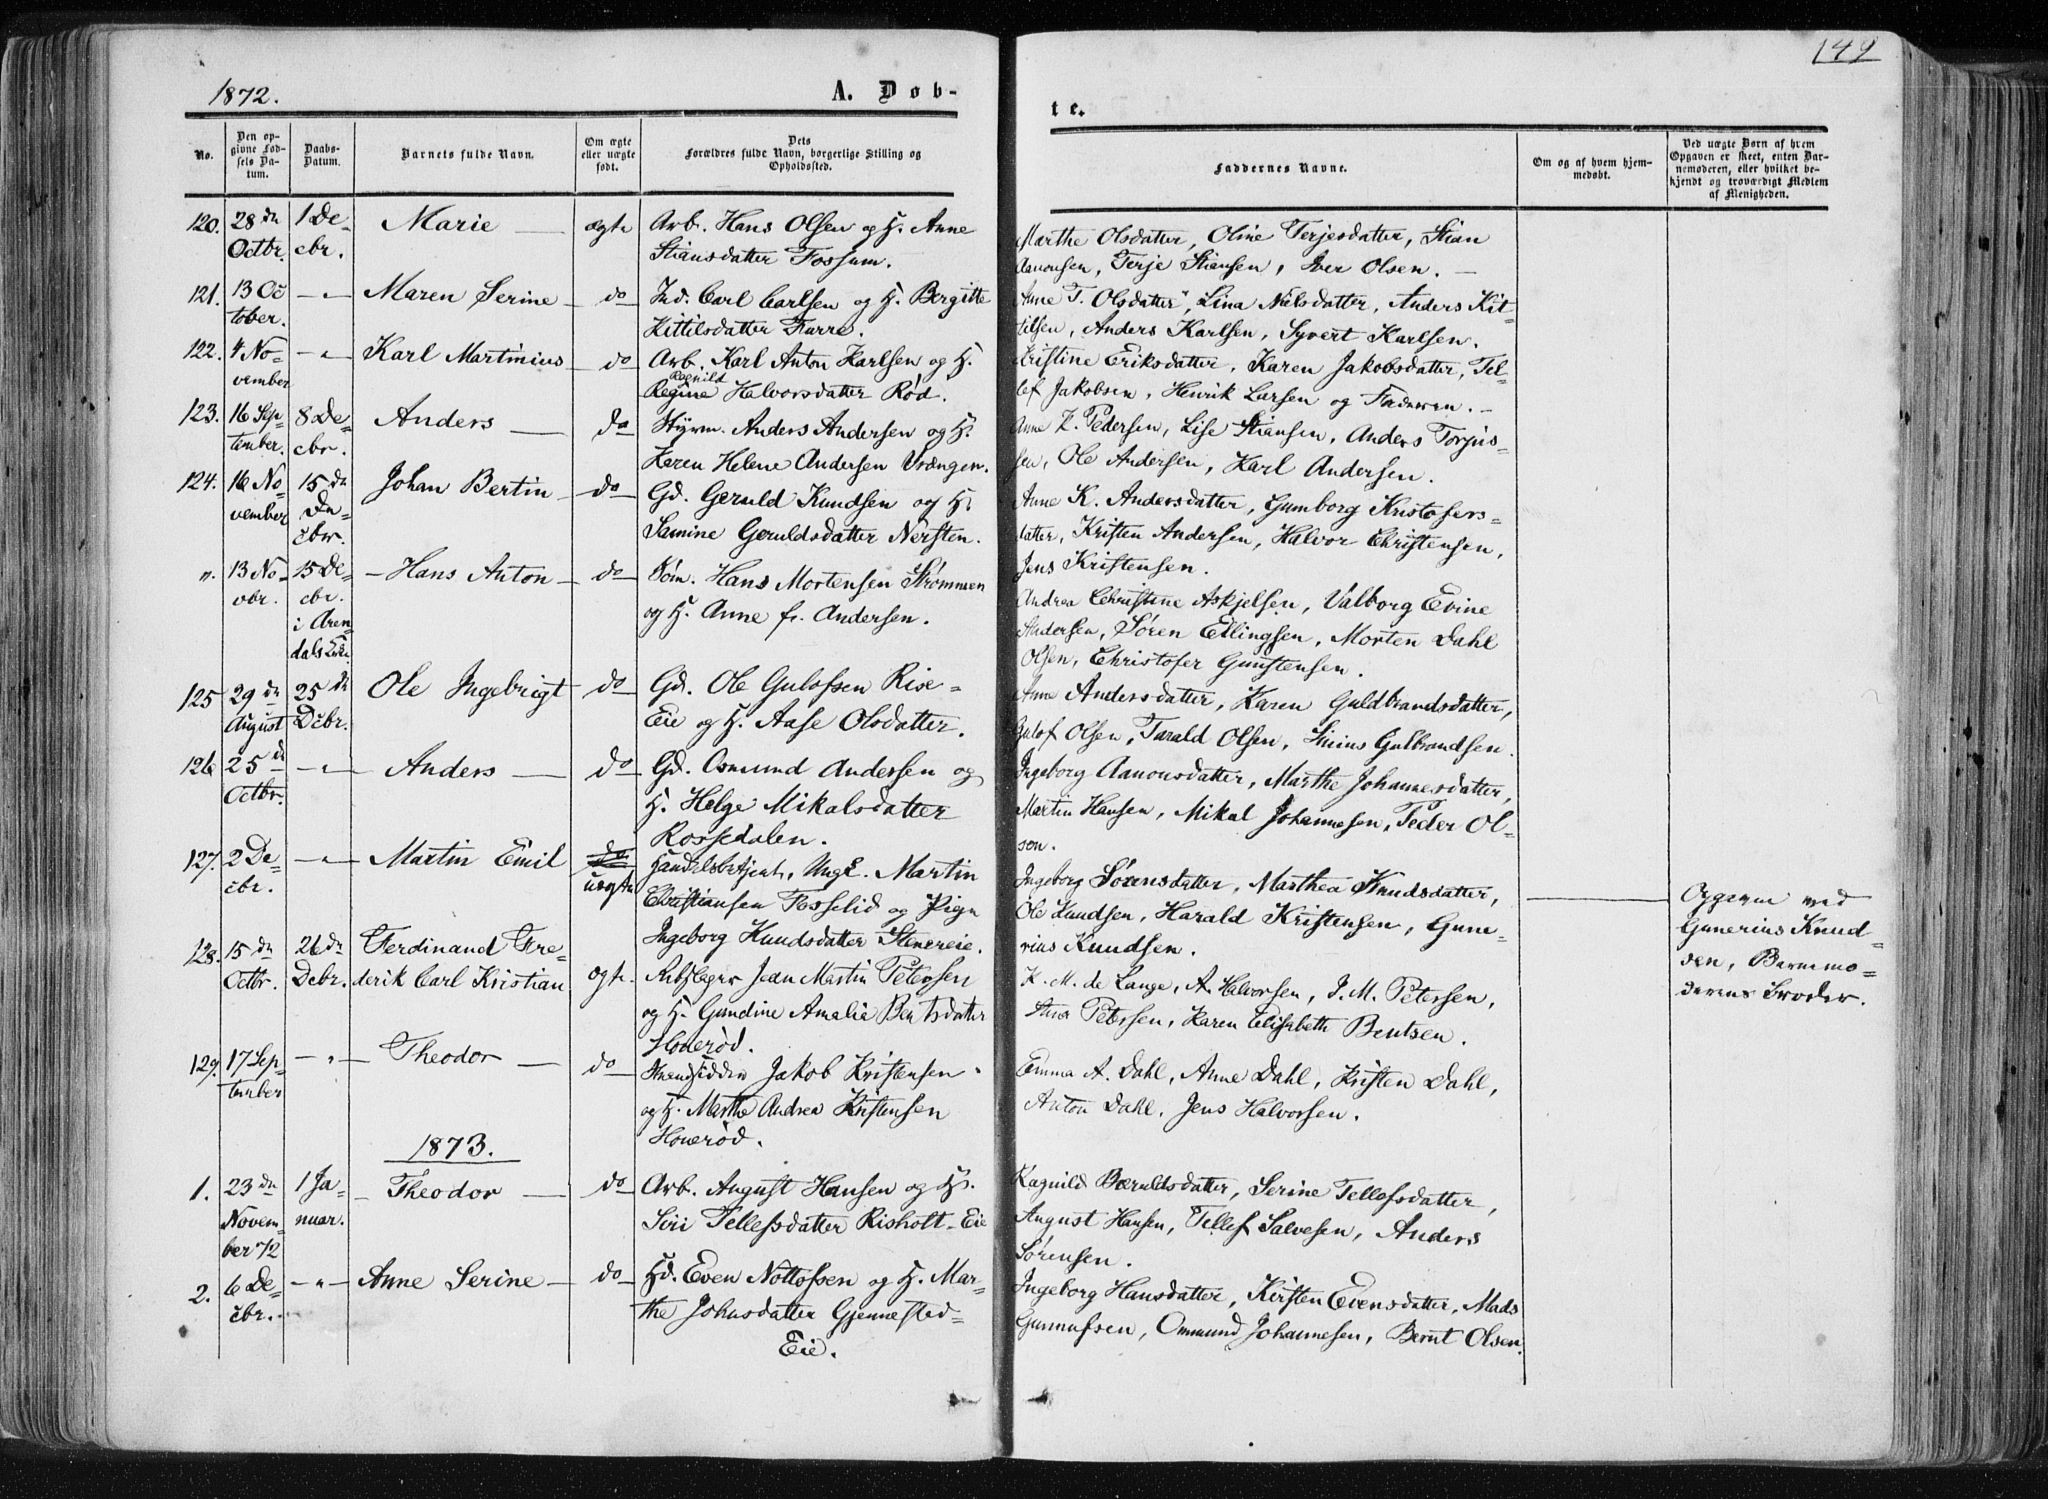 149
1872.
A. Døb-
te.
No.
Den opgivne Fødsels Datum.
Daabs-Datum.
Barnets fulde Navn.
Om ægte eller uægte født.
Dets Forældres fulde Navn, borgerlige Stilling og Opholdssted.
Faddernes Navne.
Om og af hvem hjemmedøbt.
Ved uægte Børn af hvem Opgaven er skeet, enten Barnemoderen, eller hvilket bekjendt og troværdigt Medlem af Menigheden.
120. 28de Octbr. 1 Decbr. Marie — ægte
Arb. Hans Olsen og H. Anne
Stiansdatter Fossum.
Marthe Olsdatter, Oline Terjesdatter, Stian
Aanonsen, Terje Stiansen, Iver Olsen. —
121. 13 October. — " — Maren Serine — do
Ind. Carl Carlsen og H. Bergitte
Kittilsdatter Furre.
Anne T. Olsdatter, Lina Nielsdatter, Anders Kit-
tilsen, Anders Karlsen, Syvert Karlsen.
122. 4 November — " — Karl Martinius do
Arb. Karl Anton Karlsen og H.
Ragnild
Regine Halvorsdatter Rød.
Kristine Eriksdatter, Karen Jakobsdatter, Tel-
lef Jakobsen, Henrik Larsen og Faderen. —
123. 16 September. 8 Decbr. Anders — do
Styrm. Anders Andersen og H.
Karen Helene Andersen Vrængen.
Anne K. Pedersen, Lise Stiansen, Anders Torjus-
sen, Ole Andersen, Karl Andersen.
124. 16 November 15de Decbr. Johan Bertin — do
Gd. Geruld Knudsen og H.
Samine Geruldsdatter Nersten.
Anne K. Andersdatter, Gumborg Kristofers-
datter, Kristen Andersen, Halvor Christensen,
Jens Kristensen.
n. 13 Novbr. 15 Decbr. i Arendals — Hans Anton — do
Søm. Hans Mortensen Strømmen
og H. Anne f. Andersen.
Andrea Christine Askjelsen, Valborg Evine
Andersen, Søren Ellingsen, Morten Dahl
Olsen, Christofer Gunstensen.
125 29de August 25de Decbr. Ole Ingebrigt do
Gd. Ole Gulofsen Rise-
Eie og H. Aase Olsdatter.
Anne Andersdatter, Karen Guldbrandsdatter,
Gulof Olsen, Tarald Olsen, Gulbrandsen.
126 25de Octbr. — " — Anders — do
Gd. Osmund Andersen og
H. Helge Mikalsdatter
Rossedalen.
Ingeborg Aanonsdatter, Marthe Johannesdatter,
Martin Hansen, Mikal Johannesen, Peder Ol-
sen.
127. 2 Decbr. — " — Martin Emil do uægte
Handelsbetjent, Ungk. Martin
Christiansen Fosselid og Pige
Ingeborg Knudsdatter Stenereie.
Ingeborg Sörensdatter, Marthea Knudsdatter,
Ole Knudsen, Harald Kristensen, Gune-
rius Knudsen.
Opgiven ved
Gunerius Knud-
sen, Barnemo-
derens Broder.
128. 15de Octbr. 26de Decbr. Ferdinand Fre-
derik Carl Kristian ægte
Rebslager Jean Martin Petersen
og H. Gundine Amalia Bentsdatter
Honerød.
K. M. de Lange, A. Halvorsen, J. M. Petersen,
Anna Petersen, Karen Elisabeth Bentsen.
129. 17 September — " — Theodor — do
Strandsidder Jakob Kristensen
og H. Marthe Andrea Kristensen
Honerød.
Emma A. Dahl, Anne Dahl, Kristen Dahl,
Anton Dahl, Jens Halvorsen.
1873.
1. 23de November 72 1 Januar. — Theodor — do
Arb. August Hansen og H.
Siri Tellefsdatter Risholt-Eie
Ragnild Bæruldsdatter, Serine Tellefsdatter,
August Hansen, Tellef Salvesen, Anders
Sörensen.
2. 6 Decbr. — " — Anne Serine — do
Hd. Even Nottofsen og H. Mar-
the Johnsdatter Gjennested-
Eie.
Ingeborg Hansdatter, Kirsten Evensdatter, Mads
Gunnufsen, Ommund Johannesen, Bernt Olsen.